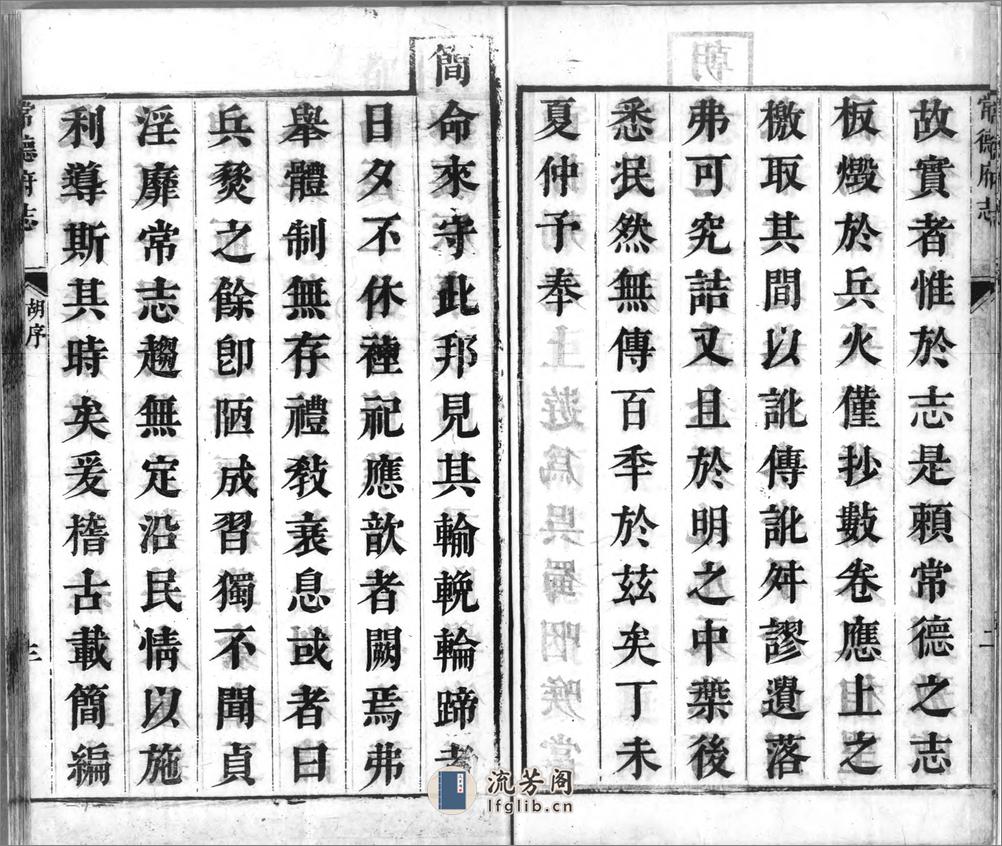 常德府志
二
故實者惟於志是賴常德之志
板燬於兵火僅抄數卷應上之
檄取其間以訛傳訛舛謬遺落
弗可究詰又且於明之中葉後
悉泯然無傳百秊於茲矣丁未
夏仲予奉
簡
命來守此邦見其輪輓輪蹄者
日夕不休禋祀應歆者闕焉弗
舉體制無存禮敎衰息或者曰
兵燹之餘卽陋成習獨不聞貞
淫靡常志趨無定沿民情以施
利導斯其時矣爰稽古載簡編
常德府志
胡序
三
流芳阁
lfglib.cn